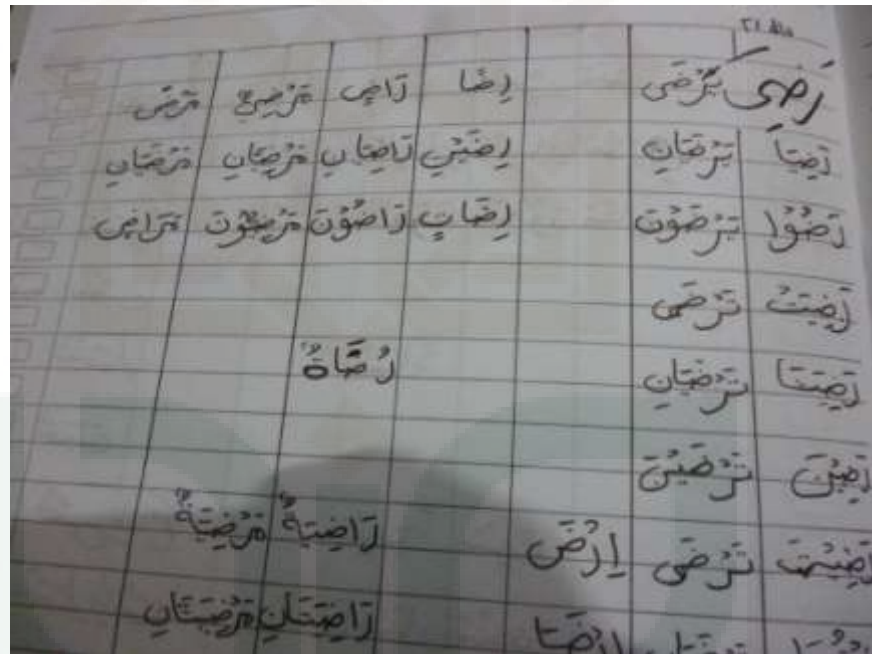 رَضِيَ يَرْضَى رِضًا رَاضٍ مَرْضِيٌّ مَرْضًى
رَضِيَا يَرْضَيَانِ رِضَيَيْنِ رَاضِيَانِ مَرْضِيَّانِ مَرْضَيَانِ
رَضُوْا يَرْضَوْنَ رِضَيَاتٍ رَاضُوْنَ مَرْضِيُّوْنَ مَرَاضِى
رَضِيَتْ تَرْضَى
رَضِيَتَا تَرْضَيَانِ رُضَّاةٌ
رَضِيْنَ يَرْضَيْنَ
رَضِيْتَ تَرْضَى اِرْضَ رَاضِيَةٌ مَرْضِيَّةٌ
اِرْضَيَا رَاضِيَتَانِ مَرْضِيَّتَانِ